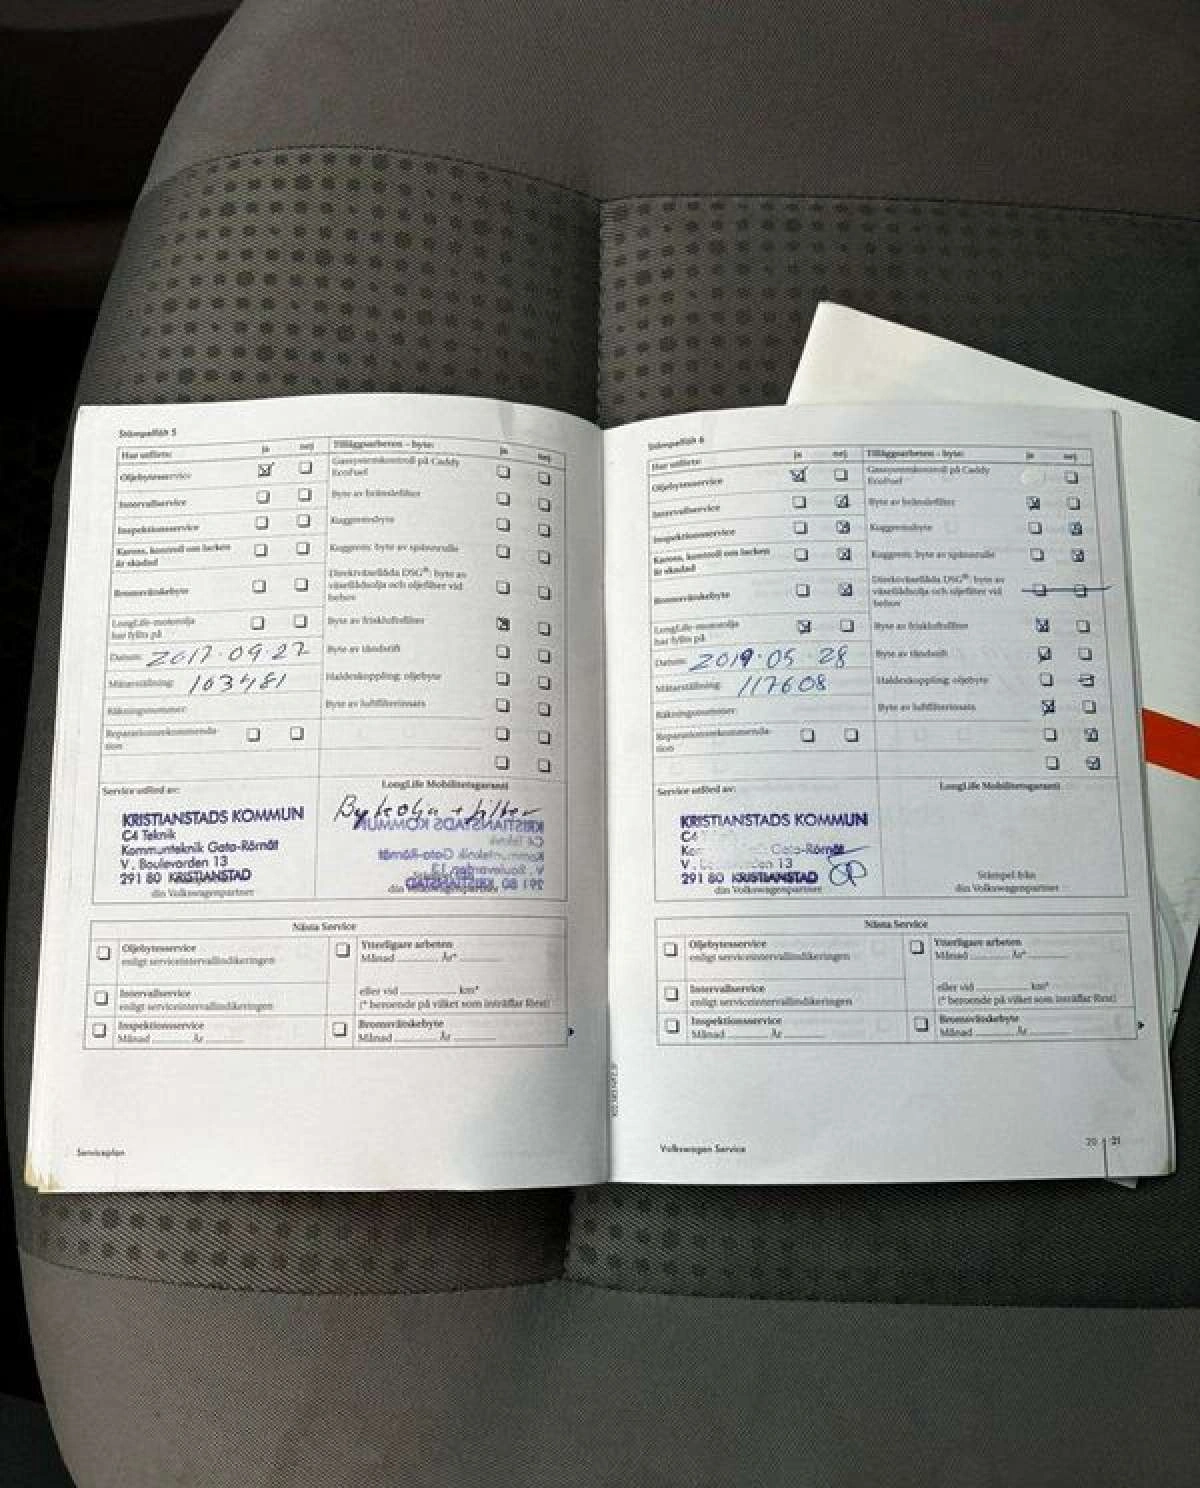 Stämpelfält 5
Har utförts: ja nej
Oljebytesservice
Intervallservice
Inspektionsservice
Kaross, kontroll om lacken
är skadad
Bromsvätskebyte
LongLife-motorolja
har fyllts på
Datum: 2017-09-27
Mätarställning: 103481
Räkningsnummer:
Reparationsrekommenda-
tion
Tilläggsarbeten – byte: ja nej
Gassystemkontroll på Caddy
EcoFuel
Byte av bränslefilter
Kuggremsbyte
Kuggrem: byte av spännrulle
Direktväxellåda DSG®: byte av
växellådsolja och oljefilter vid
behov
Byte av friskluftsfilter
Byte av tändstift
Haldexkoppling: oljebyte
Byte av luftfilterinsats
Service utförd av:
KRISTIANSTADS KOMMUN
C4 Teknik
Kommunteknik Gata-Rörnät
V. Boulevarden 13
291 80 KRISTIANSTAD
din Volkswagenpartner
LongLife Mobilitetsgaranti
Byt olja + filter
KRISTIANSTADS KOMMUN
C4 Teknik
Kommunteknik Gata-Rörnät
V. Boulevarden 13
291 80 KRISTIANSTAD
din Volkswagenpartner
Nästa Service
Oljebytesservice
enligt serviceintervallindikeringen
Intervallservice
enligt serviceintervallindikeringen
Inspektionsservice
Månad År
Ytterligare arbeten
Månad År*
eller vid km*
(* beroende på vilket som inträffar först)
Bromsvätskebyte
Månad År
Serviceplan
Stämpelfält 6
Har utförts: ja nej
Oljebytesservice
Intervallservice
Inspektionsservice
Kaross, kontroll om lacken
är skadad
Bromsvätskebyte
LongLife-motorolja
har fyllts på
Datum: 2019-05-28
Mätarställning: 117608
Räkningsnummer:
Reparationsrekommenda-
tion
Tilläggsarbeten – byte: ja nej
Gassystemkontroll på Caddy
EcoFuel
Byte av bränslefilter
Kuggremsbyte
Kuggrem: byte av spännrulle
Direktväxellåda DSG®: byte av
växellådsolja och oljefilter vid
behov
Byte av friskluftsfilter
Byte av tändstift
Haldexkoppling: oljebyte
Byte av luftfilterinsats
Service utförd av:
KRISTIANSTADS KOMMUN
C4
Gata-Rörnät
V. 13
291 80 KRISTIANSTAD
din Volkswagenpartner
LongLife Mobilitetsgaranti
Stämpel från
din Volkswagenpartner
Nästa Service
Oljebytesservice
enligt serviceintervallindikeringen
Intervallservice
enligt serviceintervallindikeringen
Inspektionsservice
Månad År
Ytterligare arbeten
Månad År*
eller vid km*
(* beroende på vilket som inträffar först)
Bromsvätskebyte
Månad År
Volkswagen Service
20 21